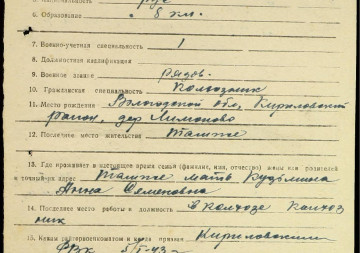 6. Образование 8 кл.
7. Военно-учетная специальность 1
8. Должностная квалификация
9. Военное звание рядов.
10. Гражданская специальность Колхозник
11. Место рождения Вологодской обл, Кириловский
район, дер Лимоново
12. Постоянное место жительства Также
13. Где проживает в настоящее время семья (фамилия, имя, отчество) жены или родителей
и точный их адрес Также мать Кузьмина
Анна Семеновна
14. Последнее место работы и должность в колхозе колхоз
ник
15. Каким райвоенкоматом и когда призван Кириловским
РВК 5/I-43 г.